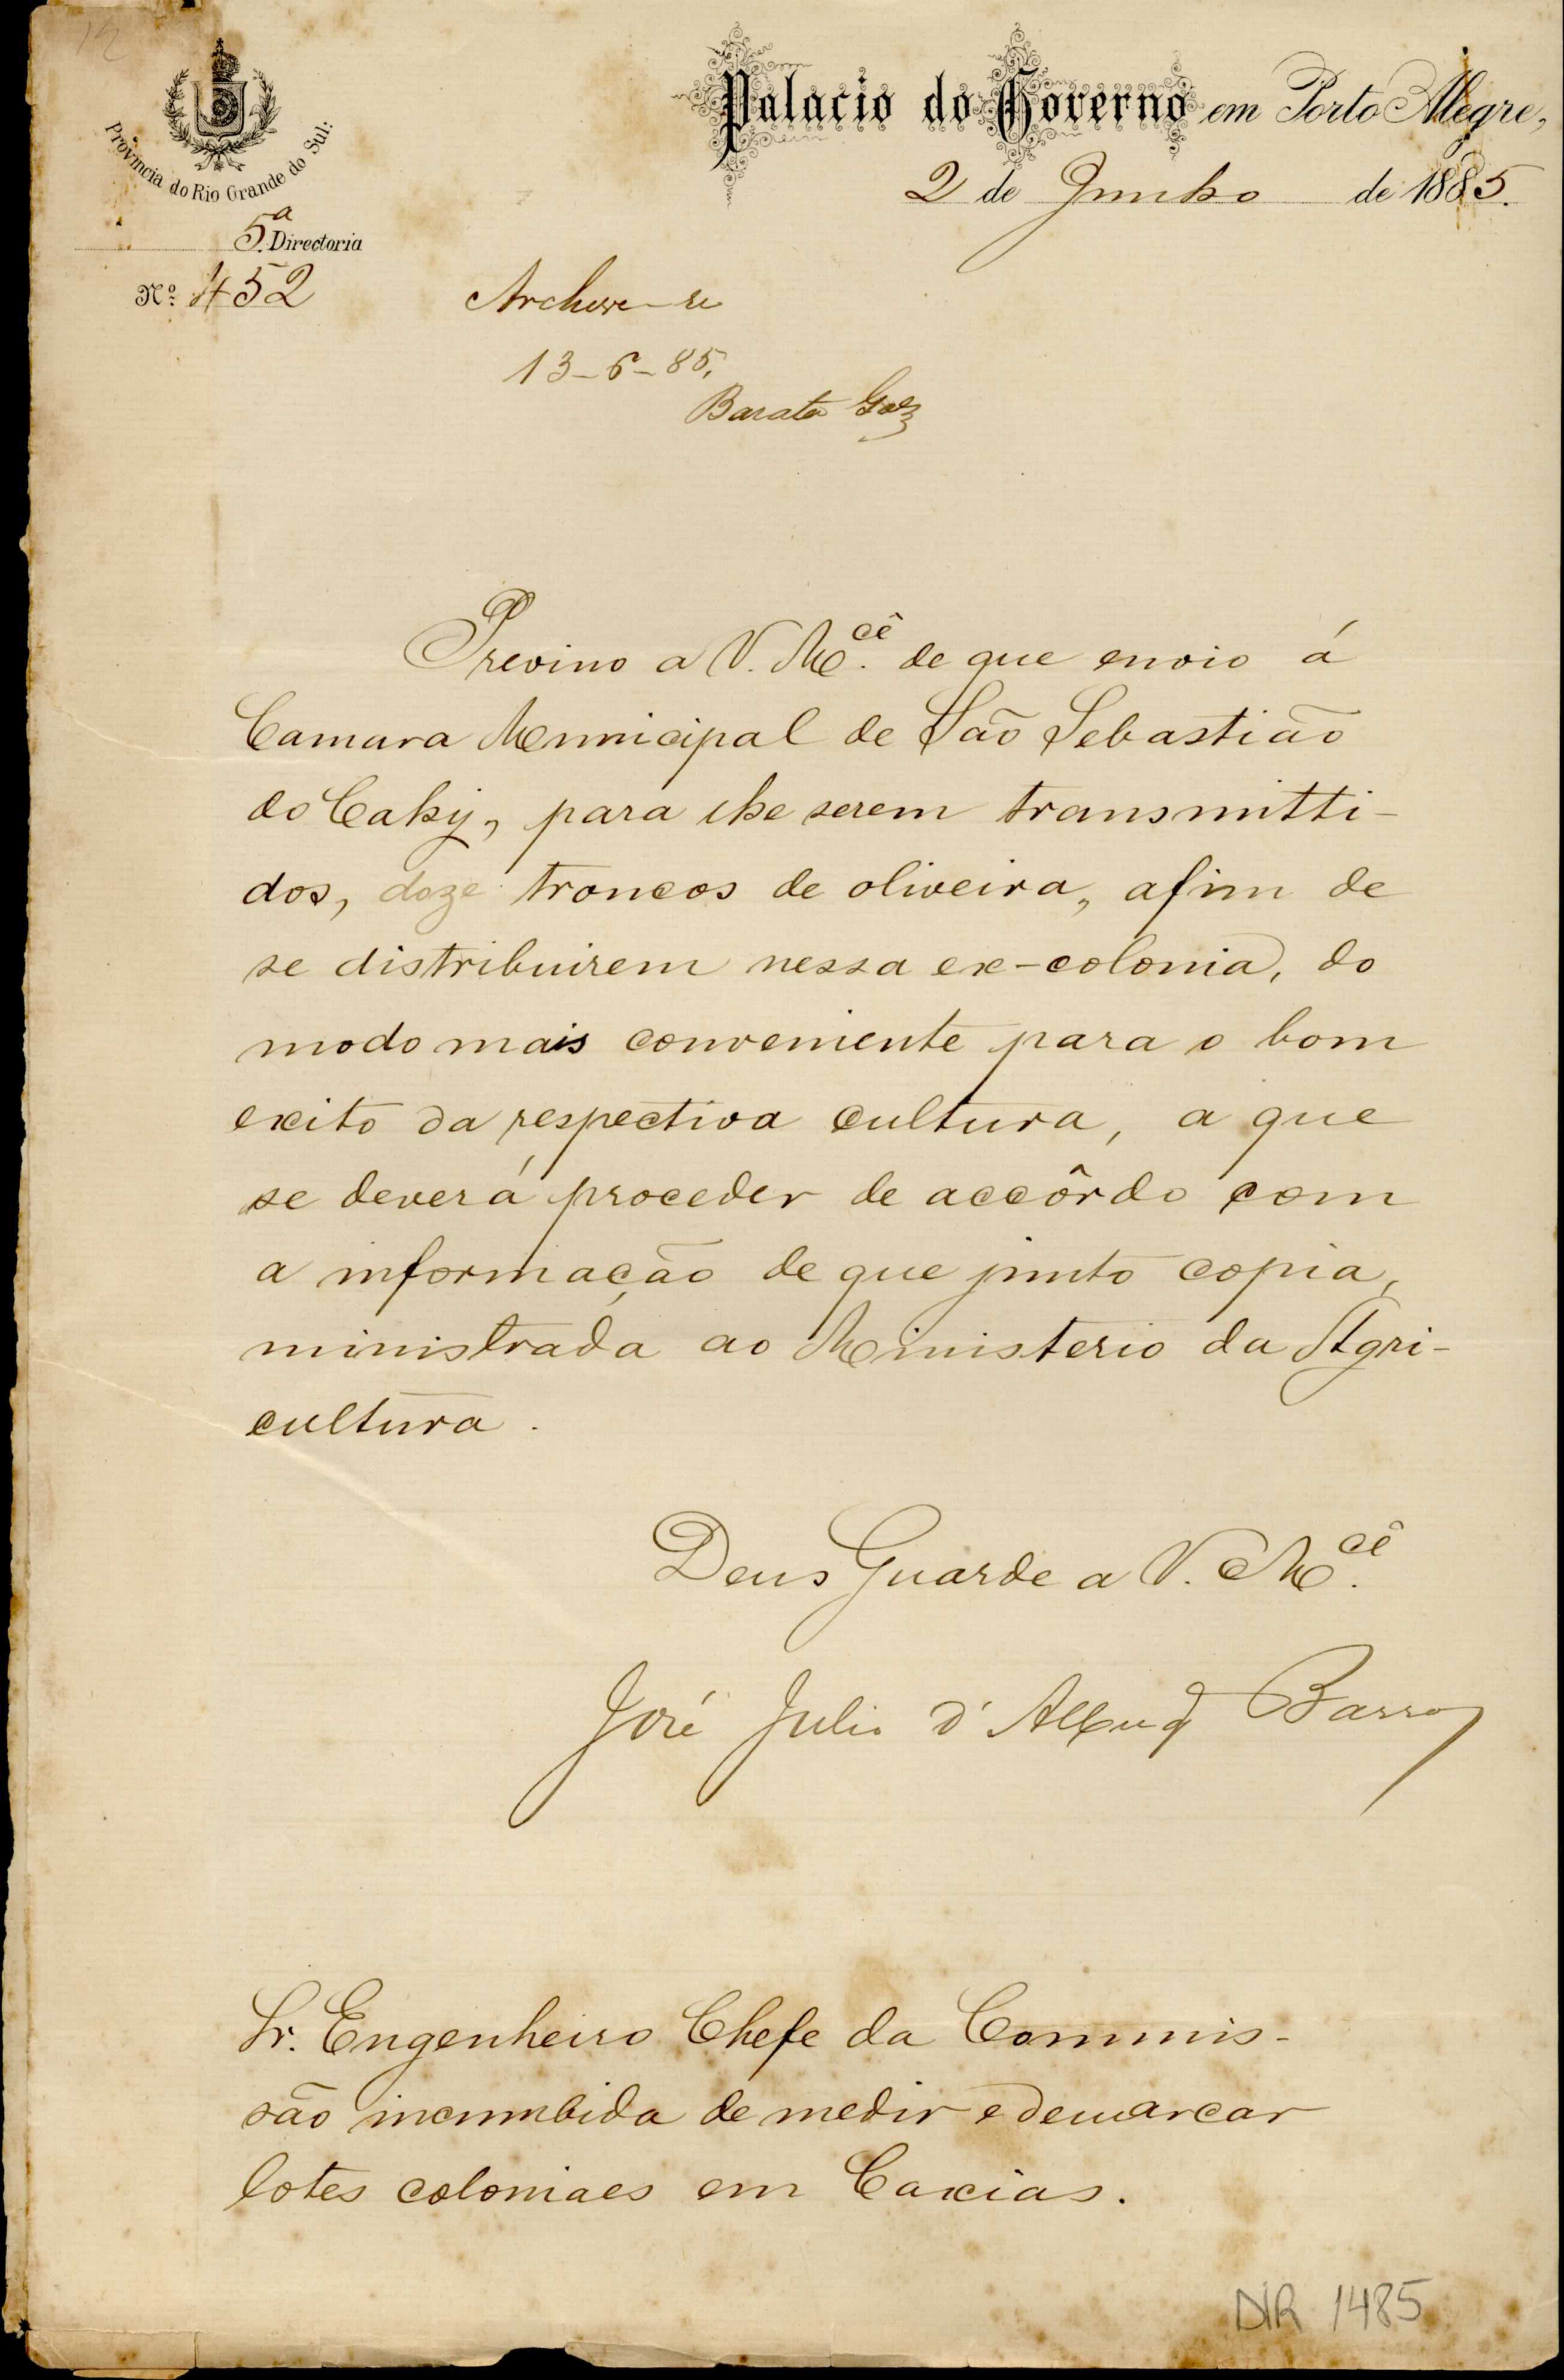 12
Palacio do Governo em Porto Alegre,
2 de Junho de 1885.
Provincia do Rio Grande do Sul:
5ª Directoria
Nº 452
Archive-se
13-6-85.
Barata Góes
Previno a V. M.cê de que envio á
Camara Municipal de São Sebastião
do Cahy, para lhe serem transmitti-
dos, doze troncos de oliveira, afim de
se distribuirem nessa ex-colonia, do
modo mais conveniente para o bom
exito da respectiva cultura, a que
se deverá proceder de accôrdo com
a informação de que junto copia,
ministrada ao Ministerio da Agri-
cultura.
Deus Guarde a V. M.cê
José Julio d'Albuqe Barros
Sr. Engenheiro Chefe da Commis-
são incumbida de medir e demarcar
lotes coloniaes em Caxias.
DIR 1485